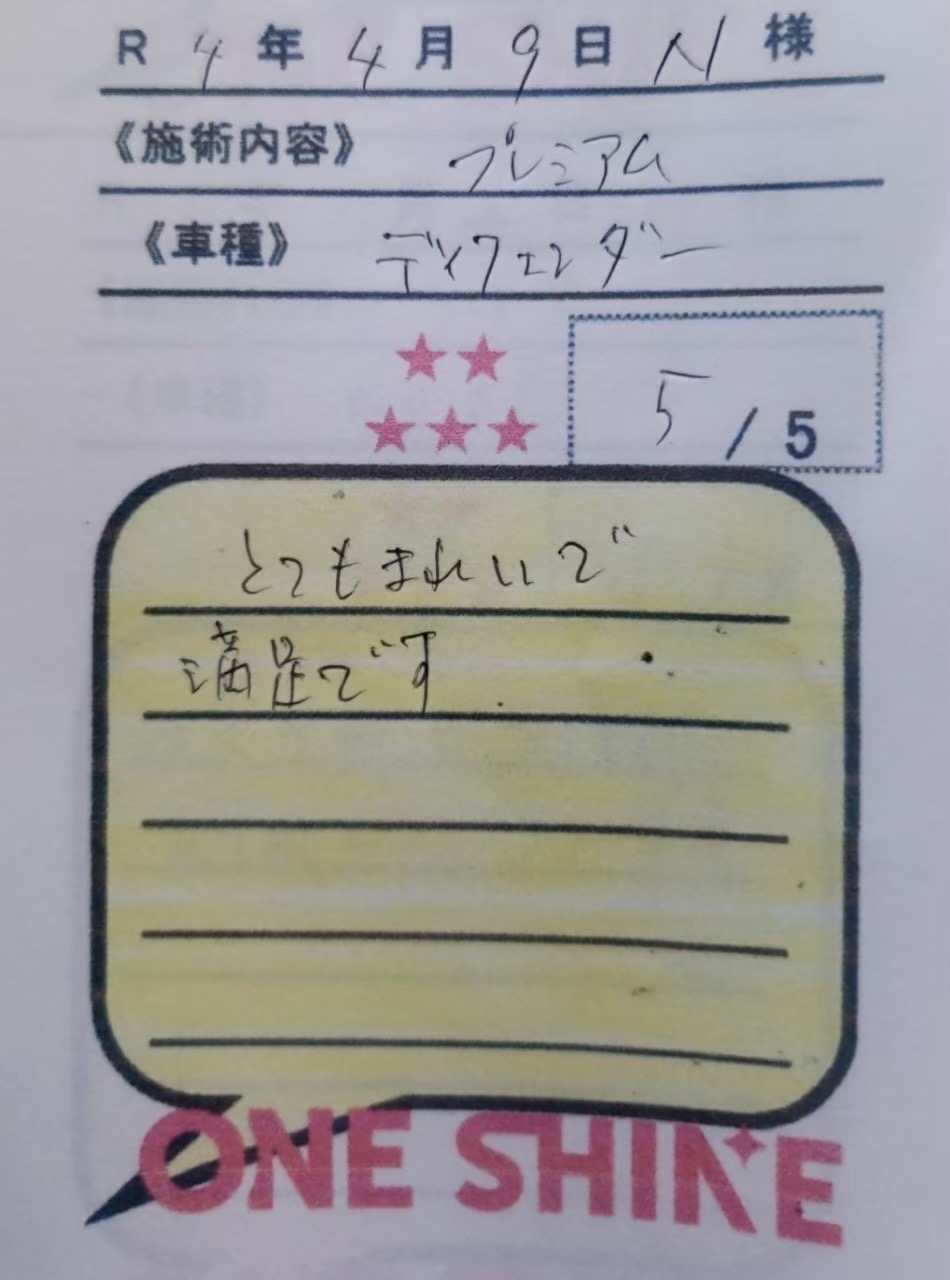 R 4 年 4 月 9 日 N 様
《施術内容》 プレミアム
《車種》 ディフェンダー
★★
★★★ 5 / 5
とてもきれいで
満足です
ONE SHINE